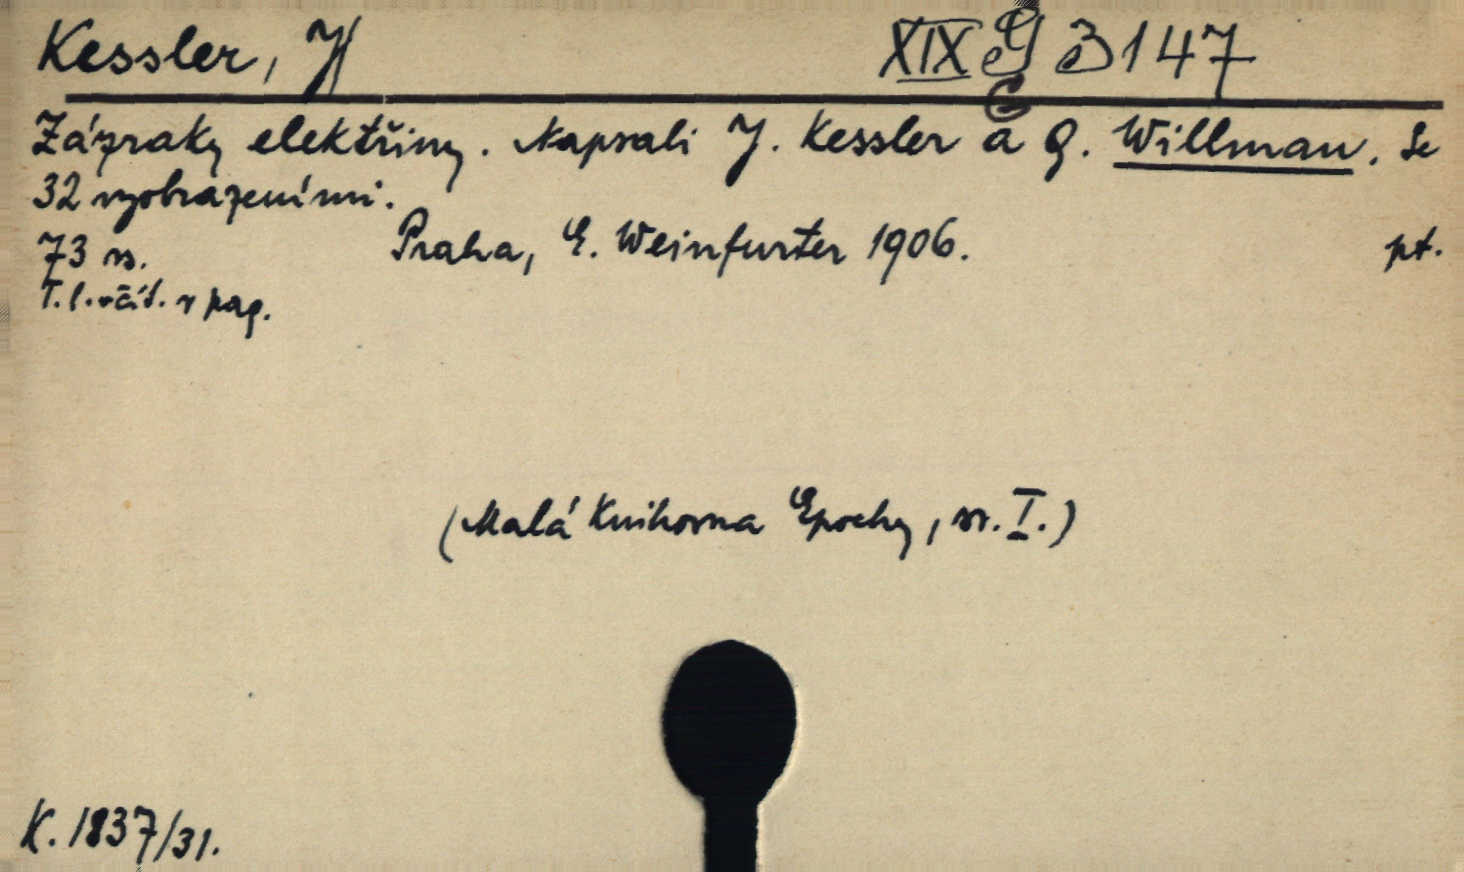 Kessler, J XIX G B 147
Zázraky elektřiny. Napsali J. Kessler a Q. Willman. Se
32 vyobrazeními.
73 s. Praha, E. Weinfurter 1906. pt.
T. l. včít. v pag.
(Malá Knihovna Epochy, sv. I.)
K. 1837/31.